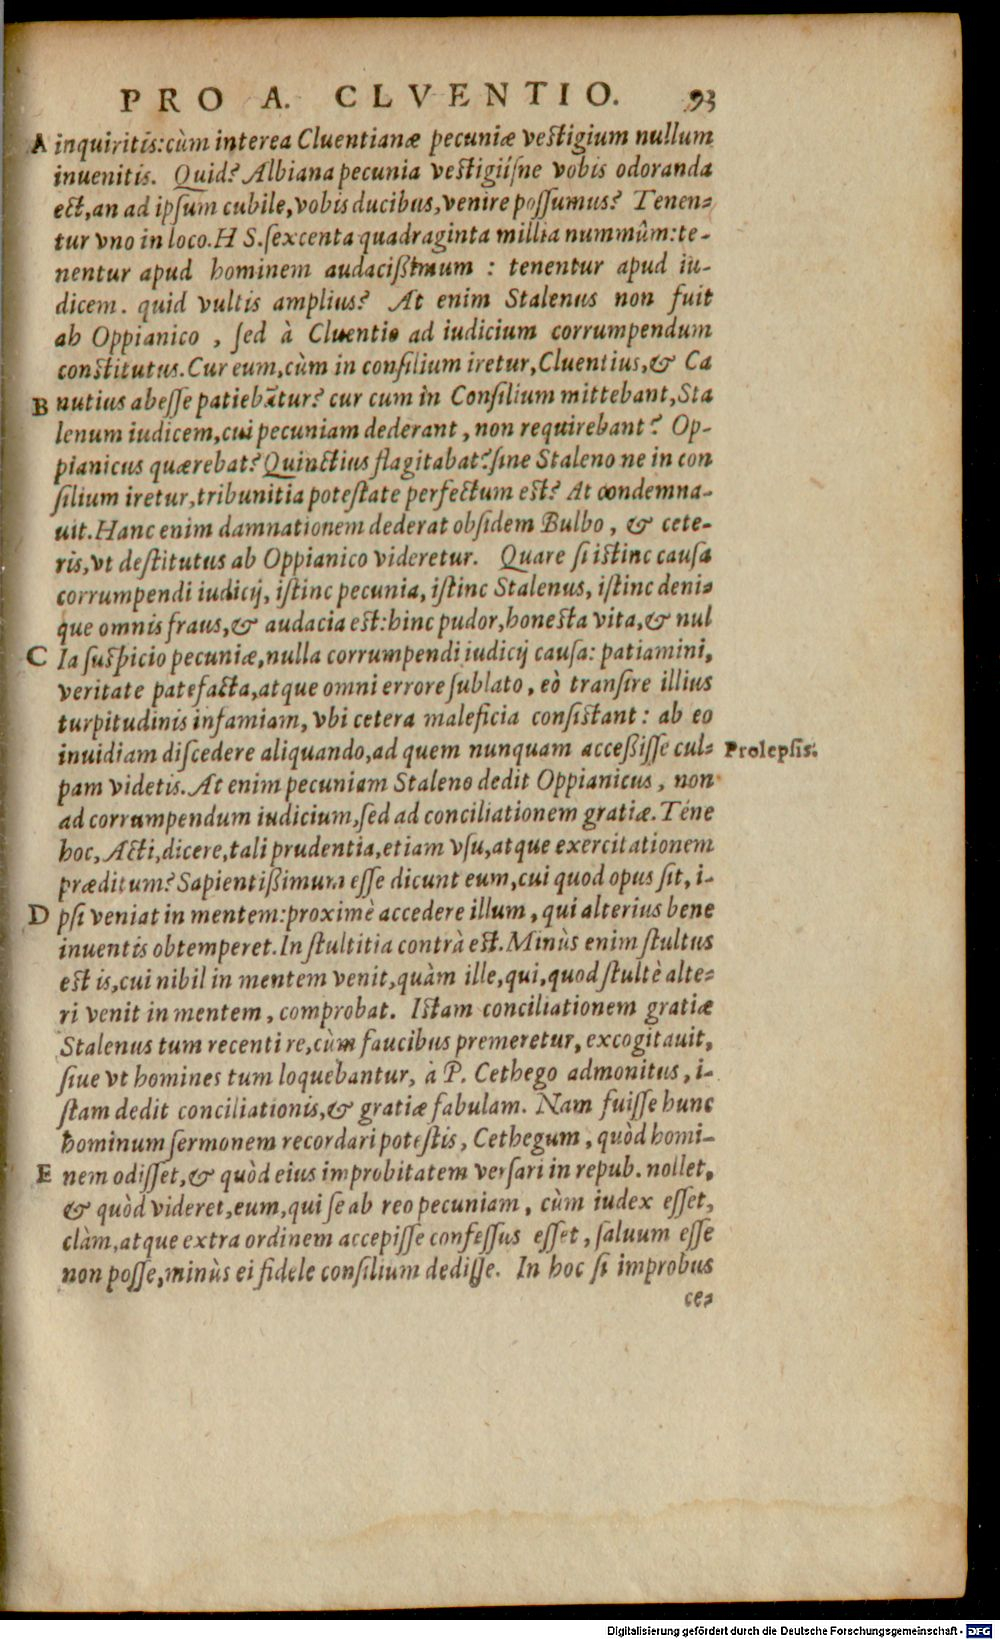 PRO A. CLVENTIO. 93
A inquiritis: cùm interea Cluentianæ pecuniæ vestigium nullum
inuenitis. Quid? Albiana pecunia vestigiísne vobis odoranda
est, an ad ipsum cubile, vobis ducibus, venire possumus? Tenen-
tur vno in loco. H S. sexcenta quadraginta millia nummûm: te-
nentur apud hominem audacißimum : tenentur apud iu-
dicem. quid vultis amplius? At enim Stalenus non fuit
ab Oppianico , sed à Cluentio ad iudicium corrumpendum
constitutus. Cur eum, cùm in consilium iretur, Cluentius, & Ca
B nutius abesse patiebãtur? cur cum in Consilium mittebant, Sta
lenum iudicem, cui pecuniam dederant , non requirebant? Op-
pianicus quærebat? Quinctius flagitabat? sine Staleno ne in con
silium iretur, tribunitia potestate perfectum est? At condemna-
uit. Hanc enim damnationem dederat obsidem Bulbo , & cete-
ris, vt destitutus ab Oppianico videretur. Quare si istinc causa
corrumpendi iudicij, istinc pecunia, istinc Stalenus, istinc deni-
que omnis fraus, & audacia est: hinc pudor, honesta vita, & nul
C la suspicio pecuniæ, nulla corrumpendi iudicij causa: patiamini,
veritate patefacta, atque omni errore sublato , eò transire illius
turpitudinis infamiam, vbi cetera maleficia consistant : ab eo
inuidiam discedere aliquando, ad quem nunquam acceßisse cul- Prolepsis.
pam videtis. At enim pecuniam Staleno dedit Oppianicus , non
ad corrumpendum iudicium, sed ad conciliationem gratiæ. Téne
hoc, Acti, dicere, tali prudentia, etiam vsu, atque exercitationem
præditum? Sapientißimum esse dicunt eum, cui quod opus sit, i-
D psi veniat in mentem: proximè accedere illum , qui alterius bene
inuentis obtemperet. In stultitia contrà est. Minùs enim stultus
est is, cui nihil in mentem venit, quàm ille, qui, quod stultè alte-
ri venit in mentem , comprobat. Istam conciliationem gratiæ
Stalenus tum recenti re, cùm faucibus premeretur, excogitauit,
siue vt homines tum loquebantur, à P. Cethego admonitus , i-
stam dedit conciliationis, & gratiæ fabulam. Nam fuisse hunc
hominum sermonem recordari potestis, Cethegum , quòd homi-
E nem odisset, & quòd eius improbitatem versari in repub. nollet,
& quòd videret, eum, qui se ab reo pecuniam , cùm iudex esset,
clàm, atque extra ordinem accepisse confessus esset , saluum esse
non posse, minùs ei fidele consilium dedisse. In hoc si improbus
ce-
Digitalisierung gefördert durch die Deutsche Forschungsgemeinschaft - DFG